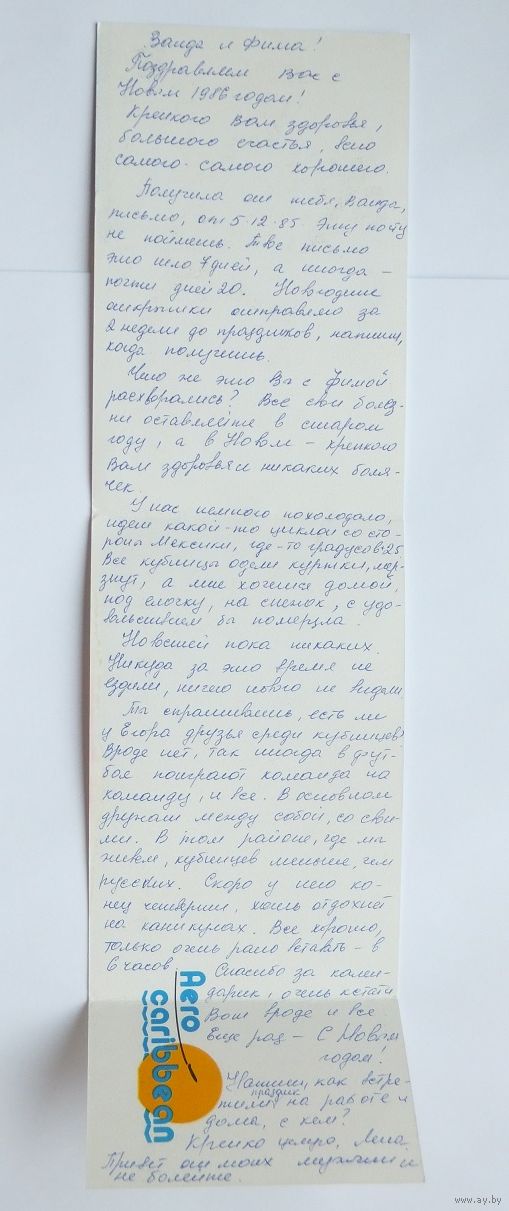 Ванда и Фима!
Поздравляем Вас с
Новым 1986 годом!
Крепкого Вам здоровья,
большого счастья, всего
самого-самого хорошего.
Получила от тебя, Ванда,
письмо, от 5.12.85. Эту почту
не поймешь. Твое письмо
это шло 7 дней, а иногда –
почти дней 20. Новогодние
открытки отправляю за
2 недели до праздников, напиши,
когда получишь.
Чего же это Вы с Фимой
расхворались? Все свои болез-
ни оставляйте в старом
году, а в Новом – крепкого
Вам здоровья и никаких боля-
чек.
У нас немного похолодало,
идет какой-то циклон со сто-
роны Мексики, где-то градусов 25
Все кубинцы одели куртки, мер-
знут, а мне хочется домой,
под елочку, на снежок, с удо-
вольствием бы померзла.
Новостей пока никаких.
Никуда за это время не
ездили, ничего нового не видели.
Ты спрашиваешь, есть ли
у Егора друзья среди кубинцев?
Вроде нет, так иногда в фут-
бол поиграют команда на
команду, и все. В основном
дружат между собой, со свои-
ми. В том районе, где мы
живем, кубинцев меньше, чем
русских. Скоро у него ко-
нец четверти, хоть отдохнет
на каникулах. Все хорошо,
только очень рано вставать – в
6 часов. Спасибо за кален-
дарик, очень кстати.
Вот вроде и все
Еще раз – С Новым
годом!
Напиши, как встре-
тили праздник на работе и
дома, с кем?
Крепко целую, Лена.
Привет от моих мужчин и
не болейте.
Aero
caribbean
www.ay.by